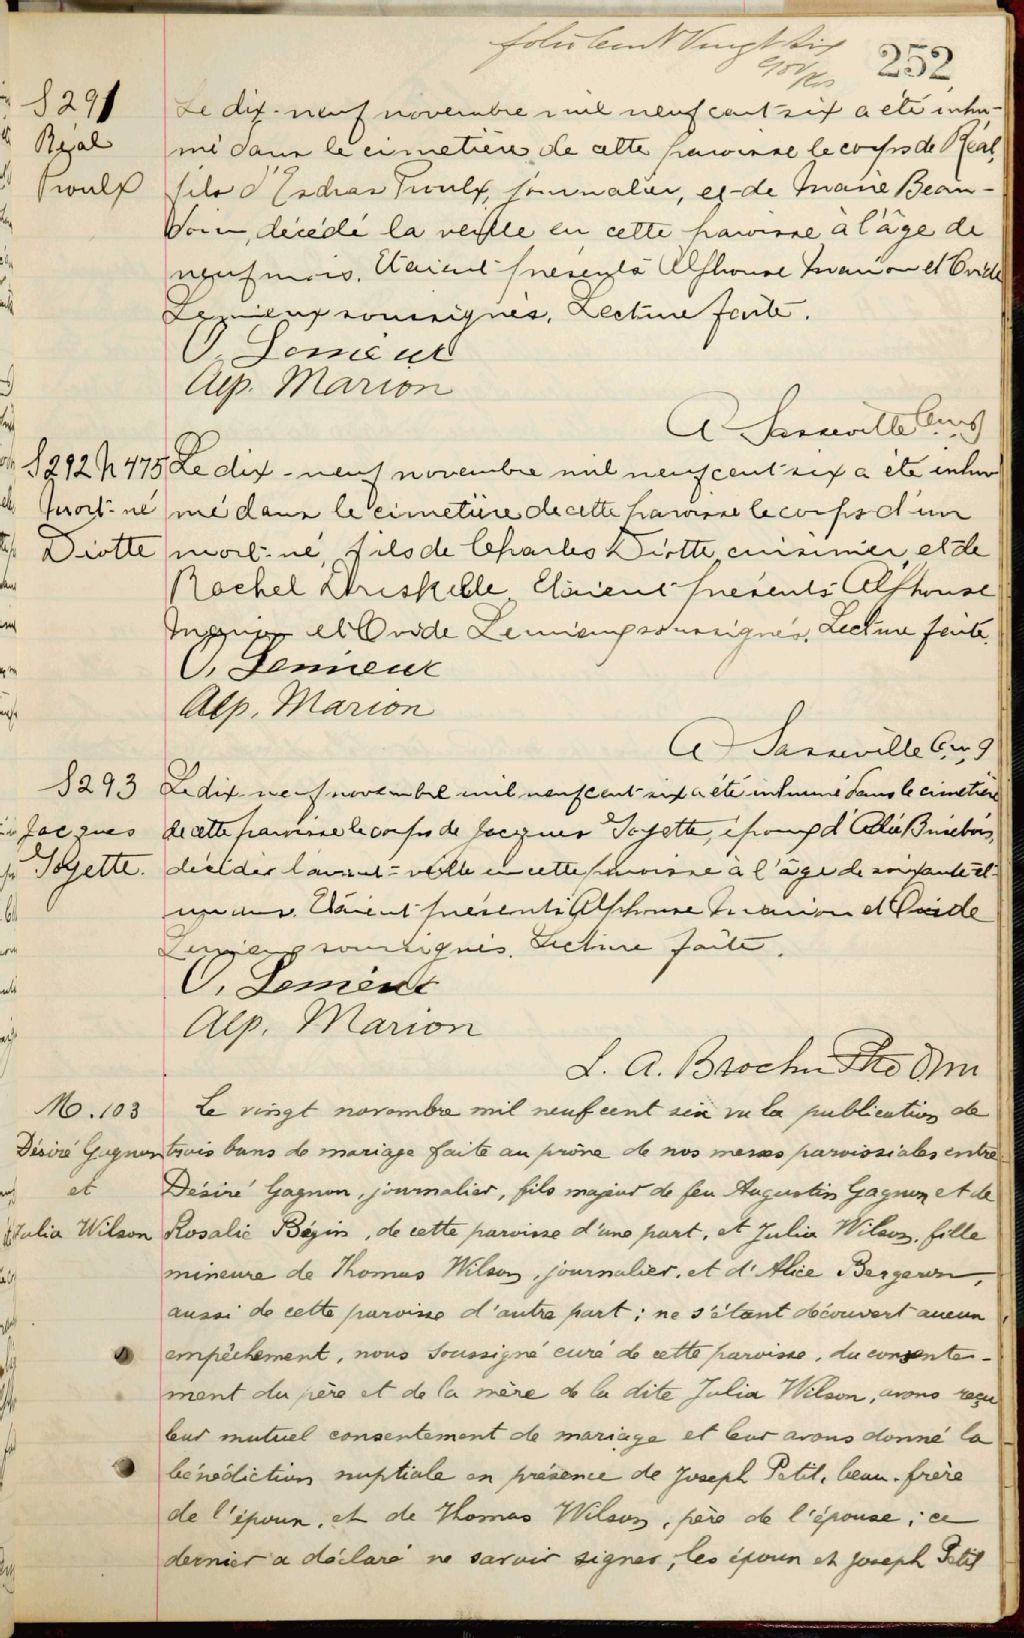 folio cent vingt six
252
S 291
Réal
Proulx
Le dix-neuf novembre mil neuf cent-six a été inhu-
mé dans le cimetière de cette paroisse le corps de Réal,
fils d'Esdras Proulx, journalier, et de Marie Beau-
doin, décédé la veille en cette paroisse à l'âge de
neuf mois. Etaient présents Alphonse Marion et Ovide
Lemieux soussignés. Lecture faite.
O. Lemieux
Alp. Marion
A Sasseville
S 292 N 475
Mort-né
Diotte
Le dix-neuf novembre mil neuf cent-six a été inhu
mé dans le cimetière de cette paroisse le corps d'un
mort-né, fils de Charles Diotte, cuisinier et de
Rachel Driskelle. Etaient présents Alphonse
Marion et Ovide Lemieux soussignés. Lecture faite.
O. Lemieux
Alp. Marion
A Sasseville
S 293
Jacques
Goyette.
Le dix-neuf novembre mil neuf cent-six a été inhumé dans le cimetière
de cette paroisse le corps de Jacques Goyette, époux d'Brisebois,
décédé l'avant-veille en cette paroisse à l'âge de soixante-et-
un ans. Etaient présents Alphonse Marion et Ovide
Lemieux soussignés. Lecture faite.
O. Lemieux
Alp. Marion
L. A. Brochu Ptre
M. 103
Désiré Gagnon
et
Julia Wilson
Le vingt novembre mil neuf cent six vu la publication de
trois bans de mariage faite au prône de nos messes paroissiales entre
Désiré Gagnon, journalier, fils majeur de feu Augustin Gagnon et de
Rosalie Bégin, de cette paroisse d'une part, et Julia Wilson, fille
mineure de Thomas Wilson, journalier, et d'Alice Bergeron,
aussi de cette paroisse d'autre part; ne s'étant découvert aucun
empêchement, nous soussigné curé de cette paroisse, du consente-
ment du père et de la mère de la dite Julia Wilson, avons reçu
leur mutuel consentement de mariage et leur avons donné la
bénédiction nuptiale en présence de Joseph Petit, beau-frère
de l'époux, et de Thomas Wilson, père de l'épouse; ce
dernier a déclaré ne savoir signer, les époux et Joseph Petit